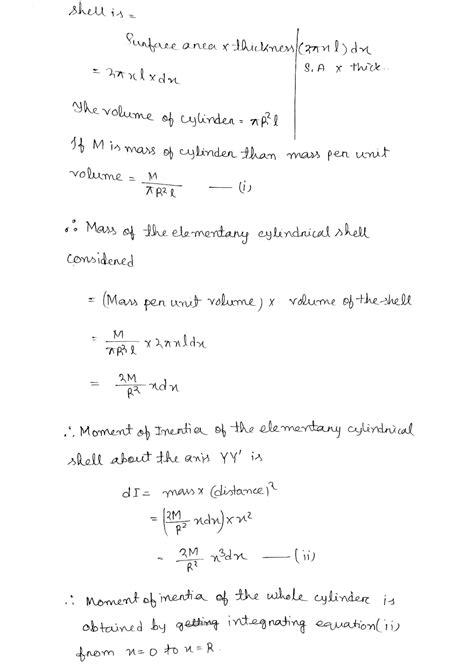 shell is =
Surface area x thickness | (2πxl) dx
= 2πxlxdx | S.A x thick..
The volume of cylinder = πR²l
If M is mass of cylinder than mass per unit
volume = M/πR²l —— (i)
∴ Mass of the elementary cylindrical shell
considered
= (Mass per unit volume) x volume of the shell
= M/πR²l x 2πxldx
= 2M/R² xdx
∴ Moment of Inertia of the elementary cylindrical
shell about the axis YY' is
dI = mass x (distance)²
= (2M/R² xdx) x x²
= 2M/R² x³dx —— (ii)
∴ Moment of inertia of the whole cylinder is
obtained by getting integrating equation (ii)
from x=0 to x=R.